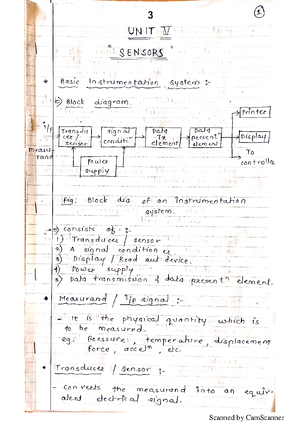 3
1
UNIT V
"SENSORS"
* Basic Instrumentation system :-
⇒ Block diagram.
Printer
i/p
Transdu
cer /
sensor
signal
conditi
Data
Tx
element
Data
present
element
Display
measu-
rand
To
controlle
Power
supply
Fig: Block dia of an Instrumentation
system.
⇒ consists of :-
1) Transducer / sensor
2) A signal condition er
3) Display / Read out device.
4) Power supply
5) Data transmission & data present element.
* Measurand / i/p signal :-
- It is the physical quantity which is
to be measured.
eg. Pressure, temperature, displacement
force, acceln, etc.
* Transducer / sensor :-
- converts the measurand into an equiv-
alent electrical signal.
Scanned by CamScanner